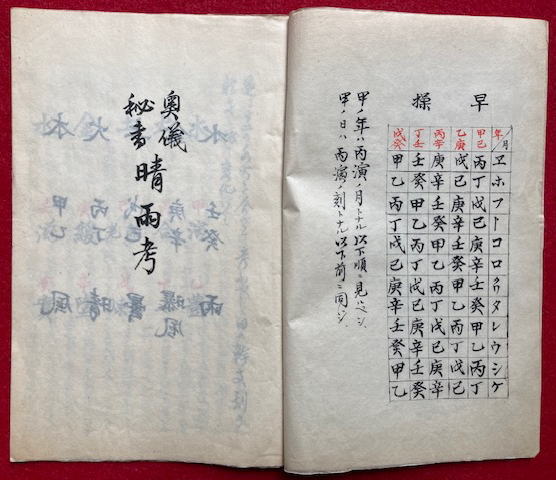 早操
年/月 ヱ ホ フ ト コ ロ タ レ ウ シ ケ
甲己 丙 丁 戊 己 庚 辛 壬 癸 甲 乙 丙 丁
乙庚 戊 己 庚 辛 壬 癸 甲 乙 丙 丁 戊 己
丙辛 庚 辛 壬 癸 甲 乙 丙 丁 戊 己 庚 辛
丁壬 壬 癸 甲 乙 丙 丁 戊 己 庚 辛 壬 癸
戊癸 甲 乙 丙 丁 戊 己 庚 辛 壬 癸 甲 乙
甲ノ年ハ丙演ノ月トナル以下順ニ見ルベシ
甲ノ日ハ丙演ノ刻トナル以下前ニ同ジ
奥儀
秘書
晴雨考